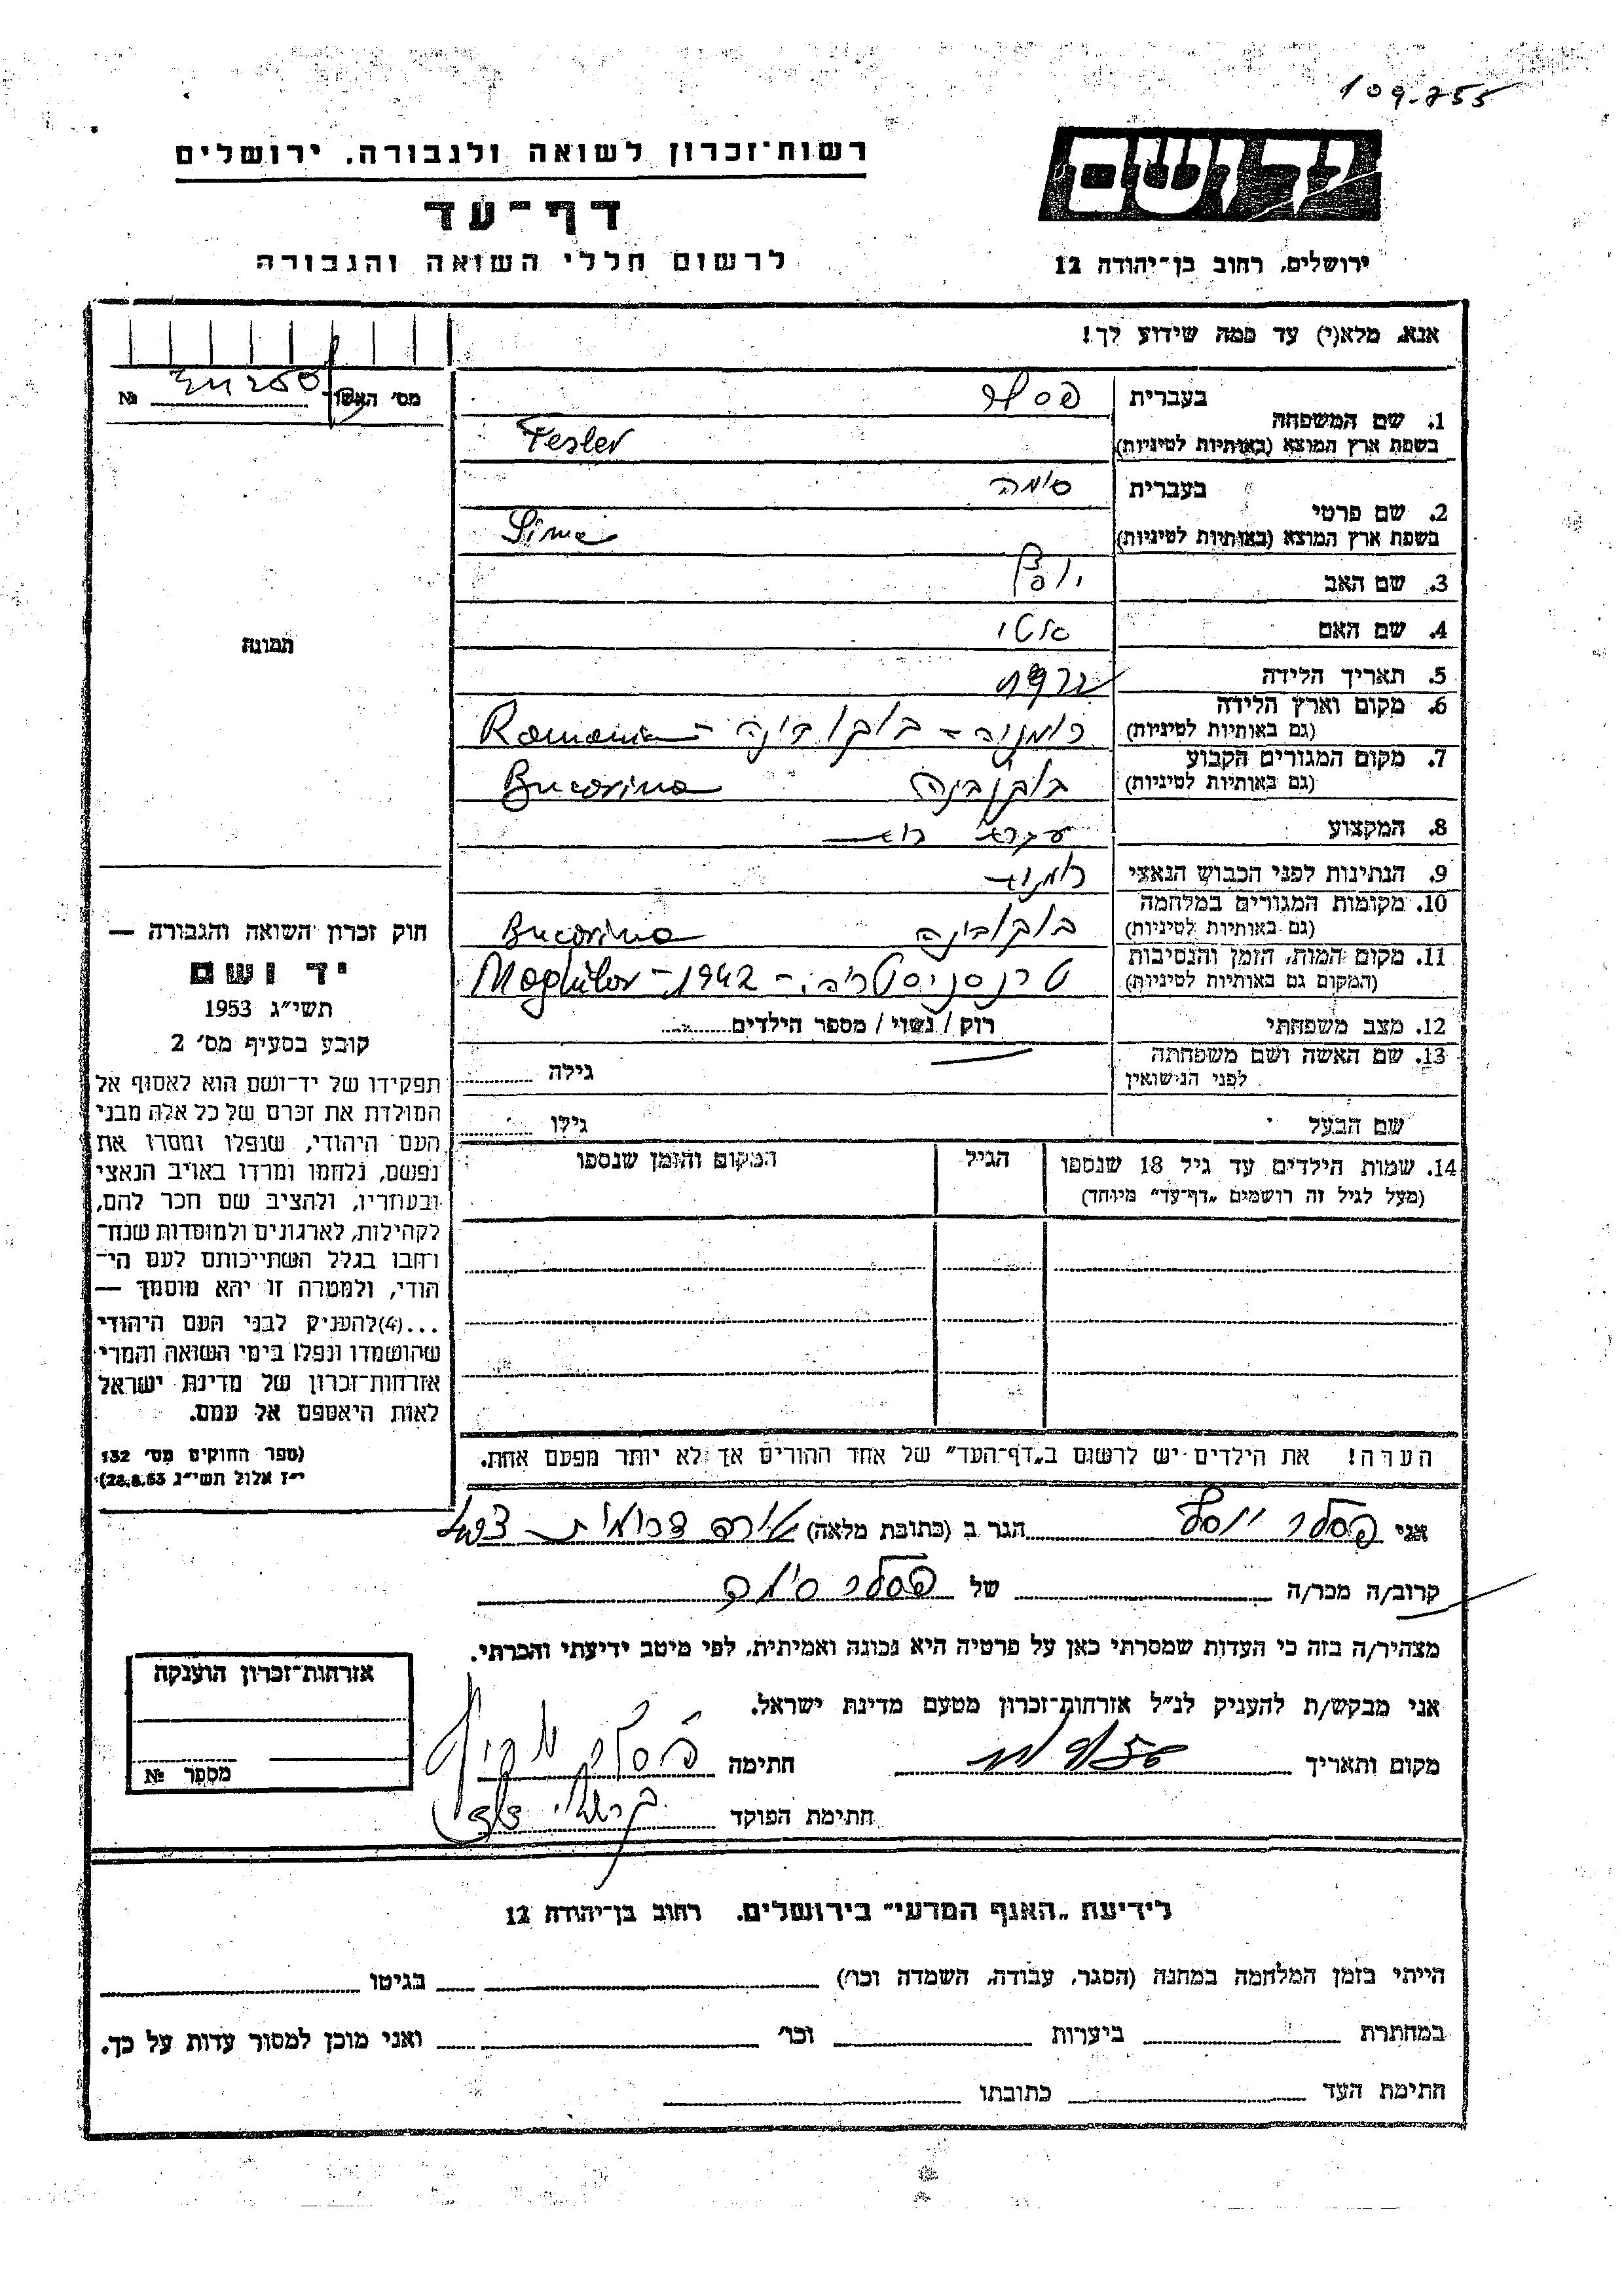 109.755
רשות־זכרון לשואה ולגבורה, ירושלים
יד ושם
דף־עד
לרשום חללי השואה והגבורה
ירושלים, רחוב בן־יהודה 12
אנא, מלא(י) עד כמה שידוע לך!
מס׳ האשה №
1. שם המשפחה
בעברית פסלר
בשפת ארץ המוצא (באותיות לטיניות) Fesler
2. שם פרטי
בעברית סימה
בשפת ארץ המוצא (באותיות לטיניות) Sima
3. שם האב
4. שם האם אטי
5. תאריך הלידה
6. מקום וארץ הלידה
(גם באותיות לטיניות) רומניה - בוקובינה - Romania
7. מקום המגורים הקבוע
(גם באותיות לטיניות) בוקובינה Bucovina
8. המקצוע עקרת בית
9. הנתינות לפני הכבוש הנאצי רומנית
10. מקומות המגורים במלחמה
(גם באותיות לטיניות) בוקובינה Bucovina
11. מקום המות, הזמן והנסיבות
(המקום גם באותיות לטיניות) טרנסניסטריה - Moghilov - 1942
12. מצב משפחתי רוק / נשוי / מספר הילדים
13. שם האשה ושם משפחתה
לפני הנישואין גילה
שם הבעל גילו
14. שמות הילדים עד גיל 18 שנספו
(מעל לגיל זה רושמים „דף־עד” מיוחד)
הגיל
המקום והזמן שנספו
תמונה
חוק זכרון השואה והגבורה —
יד ושם
תשי״ג 1953
קובע בסעיף מס׳ 2
תפקידו של יד־ושם הוא לאסוף אל
המולדת את זכרם של כל אלה מבני
העם היהודי, שנפלו ומסרו את
נפשם, נלחמו ומרדו באויב הנאצי
ובעוזריו, ולהציב שם וזכר להם,
לקהילות, לארגונים ולמוסדות שנח־
רחבו בגלל השתייכותם לעם הי־
הודי, ולמטרה זו יהא מוסמך —
...(4) להעניק לבני העם היהודי
שהושמדו ונפלו בימי השואה והמרי
אזרחות־זכרון של מדינת ישראל
לאות היאספם אל עמם.
(ספר החוקים מס׳ 132
י״ז אלול תשי״ג 28.8.53)
הערה! את הילדים יש לרשום ב„דף־העד” של אחד ההורים אך לא יותר מפעם אחת.
אני פסלר יוסף הגר ב (כתובת מלאה)
קרוב/ה מכר/ה של פסלר סימה
מצהיר/ה בזה כי העדות שמסרתי כאן על פרטיה היא נכונה ואמיתית, לפי מיטב ידיעתי והכרתי.
אני מבקש/ת להעניק לנ״ל אזרחות־זכרון מטעם מדינת ישראל.
מקום ותאריך חתימה
חתימת הפוקד
אזרחות־זכרון הוענקה
מספר №
לידיעת „האגף המדעי” בירושלים, רחוב בן־יהודה 12
הייתי בזמן המלחמה במחנה (הסגר, עבודה, השמדה וכו׳) בגיטו
במחתרת ביערות וכו׳ ואני מוכן למסור עדות על כך.
חתימת העד כתובתו